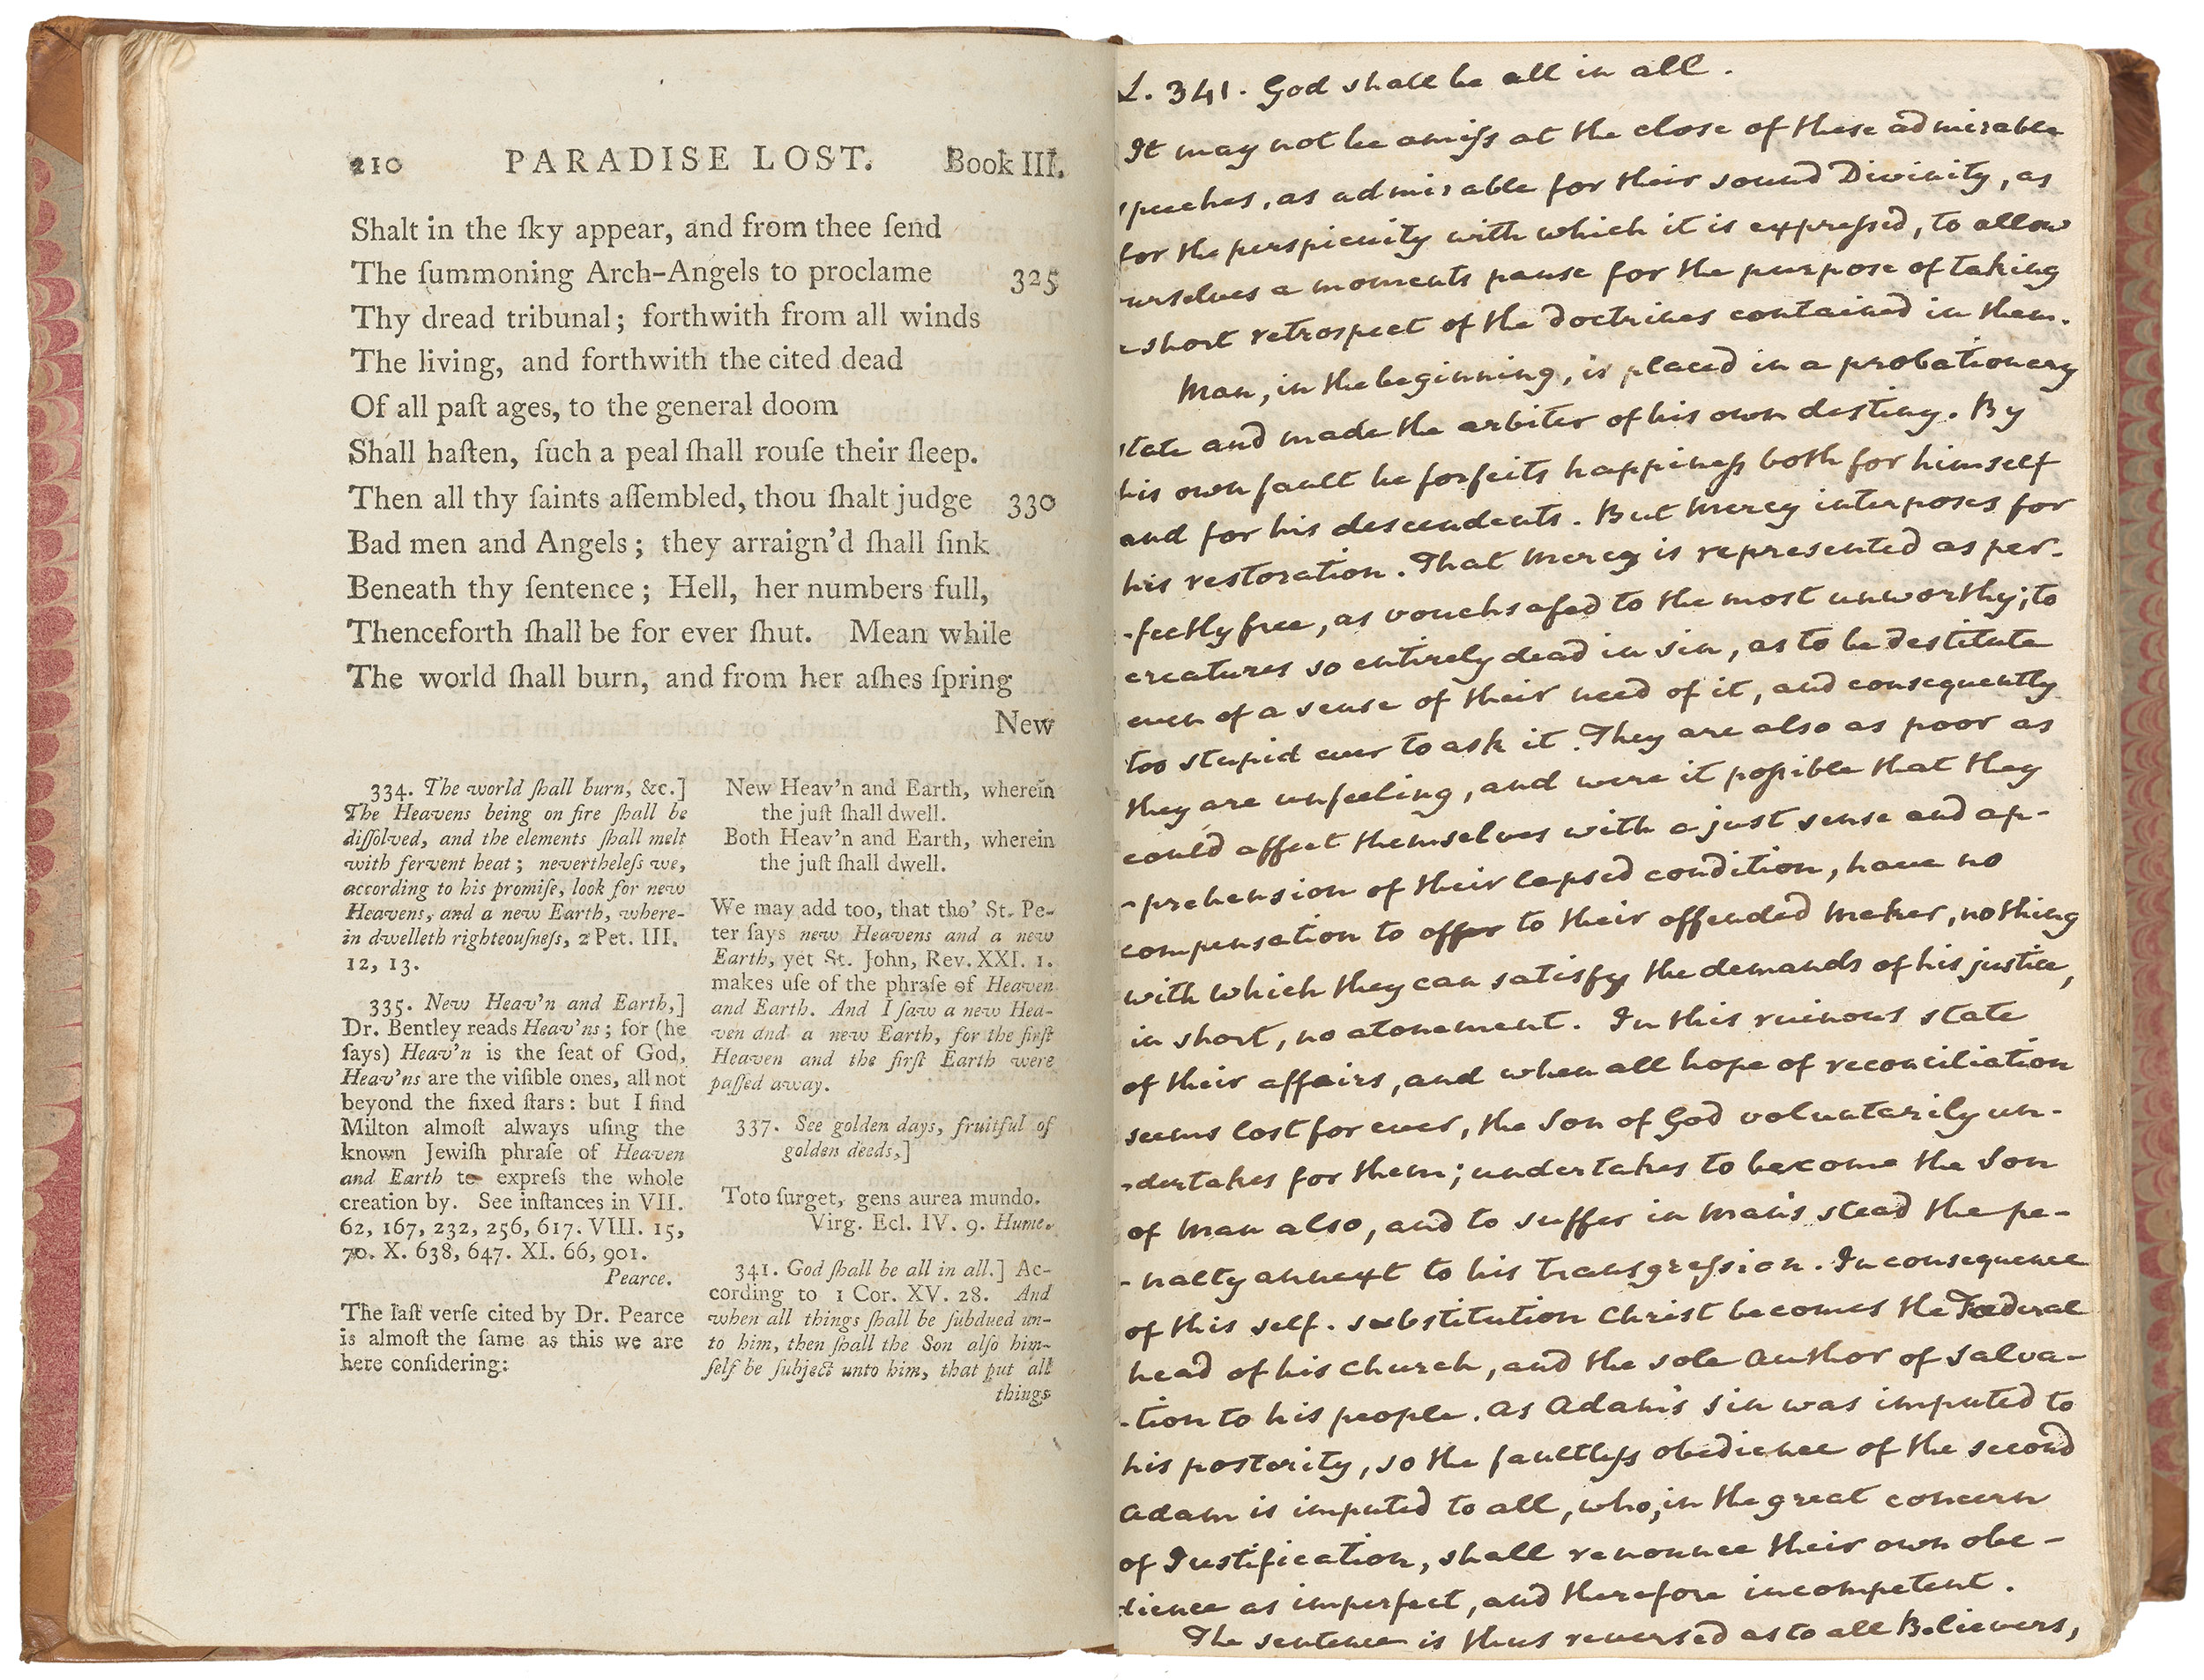 210 PARADISE LOST. Book III.
Shalt in the ſky appear, and from thee ſend
The ſummoning Arch-Angels to proclame 325
Thy dread tribunal; forthwith from all winds
The living, and forthwith the cited dead
Of all paſt ages, to the general doom
Shall haſten, ſuch a peal ſhall rouſe their ſleep.
Then all thy ſaints aſſembled, thou ſhalt judge 330
Bad men and Angels; they arraign'd ſhall ſink
Beneath thy ſentence; Hell, her numbers full,
Thenceforth ſhall be for ever ſhut. Mean while
The world ſhall burn, and from her aſhes ſpring
New
334. The world ſhall burn, &c.]
The Heavens being on fire ſhall be
diſſolved, and the elements ſhall melt
with fervent heat; nevertheleſs we,
according to his promiſe, look for new
Heavens, and a new Earth, where-
in dwelleth righteouſneſs, 2 Pet. III.
12, 13.
335. New Heav'n and Earth,]
Dr. Bentley reads Heav'ns; for (he
ſays) Heav'n is the ſeat of God,
Heav'ns are the viſible ones, all not
beyond the fixed ſtars: but I find
Milton almoſt always uſing the
known Jewiſh phraſe of Heaven
and Earth to expreſs the whole
creation by. See inſtances in VII.
62, 167, 232, 256, 617. VIII. 15,
70. X. 638, 647. XI. 66, 901.
Pearce.
The laſt verſe cited by Dr. Pearce
is almoſt the ſame as this we are
here conſidering:
New Heav'n and Earth, wherein
the juſt ſhall dwell.
Both Heav'n and Earth, wherein
the juſt ſhall dwell.
We may add too, that tho' St. Pe-
ter ſays new Heavens and a new
Earth, yet St. John, Rev. XXI. 1.
makes uſe of the phraſe of Heaven
and Earth. And I ſaw a new Hea-
ven and a new Earth, for the firſt
Heaven and the firſt Earth were
paſſed away.
337. See golden days, fruitful of
golden deeds,]
Toto ſurget, gens aurea mundo.
Virg. Ecl. IV. 9. Hume.
341. God ſhall be all in all.] Ac-
cording to 1 Cor. XV. 28. And
when all things ſhall be ſubdued un-
to him, then ſhall the Son alſo him-
ſelf be ſubject unto him, that put all
things
L. 341. God shall be all in all.
It may not be amiſs at the close of these admirable
speeches, as admirable for their sound Divinity, as
for the perspicuity with which it is expreſsed, to allow
urselves a moments pause for the purpose of taking
a short retrospect of the doctrines contained in them.
Man, in the beginning, is placed in a probationary
state and made the arbiter of his own destiny. By
his own fault he forfeits happineſs both for himself
and for his descendents. But Mercy interposes for
his restoration. That Mercy is represented as per-
-fectly free, as vouchsafed to the most unworthy; to
creatures so entirely dead in sin, as to be destitute
even of a sense of their need of it, and consequently
too stupid ever to ask it. They are also as poor as
they are unfeeling, and were it poſsible that they
could affect themselves with a just sense and ap-
-prehension of their lapsed condition, have no
compensation to offer to their offended Maker, nothing
with which they can satisfy the demands of his justice,
in short, no atonement. In this ruinous state
of their affairs, and when all hope of reconciliation
seems lost for ever, the Son of God voluntarily un-
-dertakes for them; undertakes to become the Son
of Man also, and to suffer in Man's stead the pe-
-nalty annext to his transgreſsion. In consequence
of this self-substitution Christ becomes the Fœderal
head of his church, and the sole Author of Salva-
-tion to his people. As Adam's sin was imputed to
his posterity, so the faultleſs obedience of the second
Adam is imputed to all, who, in the great concern
of Justification, shall renounce their own obe-
dience as imperfect, and therefore incompetent.
The sentence is thus reversed as to all Believers,